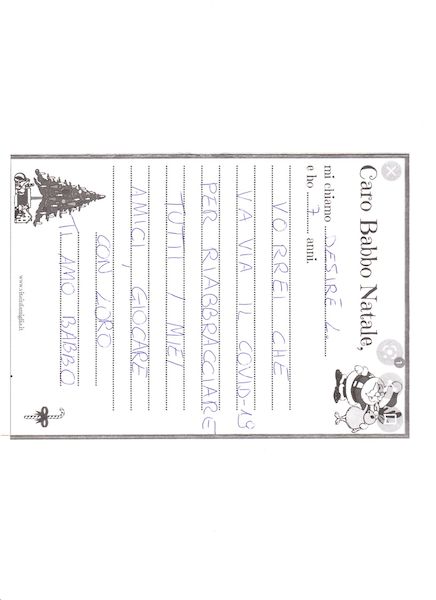 Caro Babbo Natale,
mi chiamo DESIRÈ L.
e ho 7 anni.
VORREI CHE
VA VIA IL COVID-19
PER RIABBRACCIARE
TUTTI I MIEI
AMICI, GIOCARE
CON LORO
TI AMO BABBO